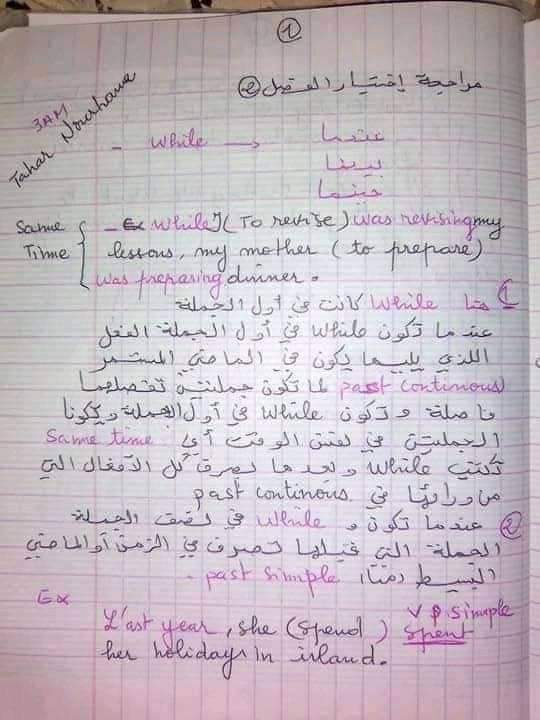 ①
مراجعة إختبار الفصل ②
3AM
Tahar Nourhane
- while → عندما
بينما
حينما
Same Time { - Ex while I (To revise) was revising my
lessons, my mother (to prepare)
was preparing dinner.
① هنا while كانت في أول الجملة
عندما تكون while في أول الجملة الفعل
اللذي يليها يكون في الماضي المستمر
past continous لما تكون جملتين تفصلهما
فاصلة و تكون while في أول الجملة و يكونا
الجملتين في نفس الوقت أي same time
تكتب while و بعدها نصرف كل الأفعال التي
من ورائها في past continous
② عندما تكون while في نصف الجملة
الجملة التي قبلها تصرف في الزمن أو الماضي
البسيط دمتا، past simple.
Ex
L'ast year, she (spend) spent V p. simple
her holidays in irland.